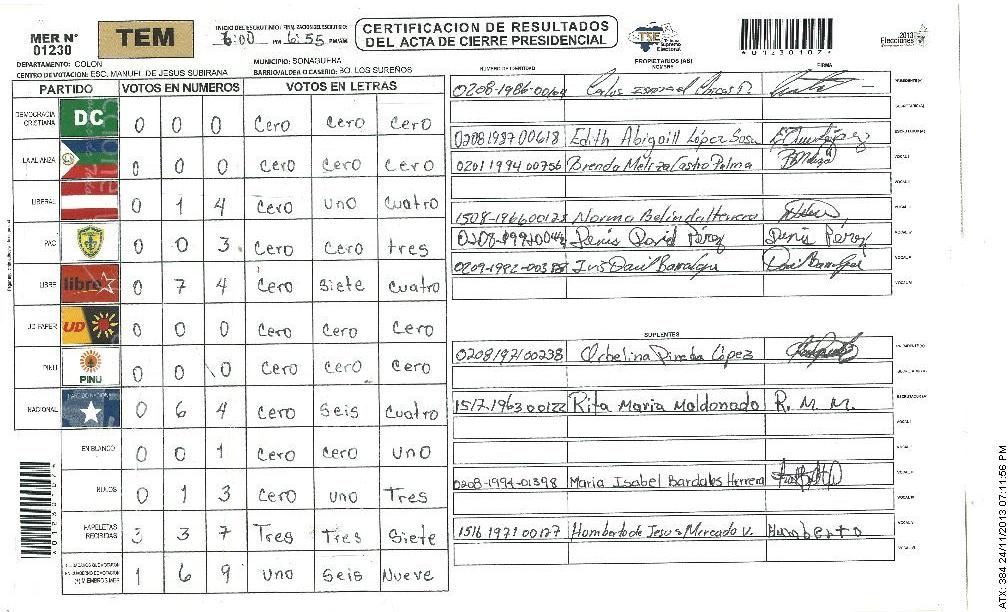 MER N° 01230
TEM
INICIO DEL ESCRUTINIO: 6:00 PM
6:55 PM/AM
CERTIFICACION DE RESULTADOS
DEL ACTA DE CIERRE PRESIDENCIAL
TSE
Tribunal Supremo Electoral
A01230107
2013
Elecciones
DEPARTAMENTO: COLON
MUNICIPIO: SONAGUERA
CENTRO DE VOTACION: ESC. MANUEL DE JESUS SUBIRANA
BARRIO/ALDEA O CASERIO: BO. LOS SUREÑOS
PARTIDO VOTOS EN NUMEROS VOTOS EN LETRAS
DEMOCRACIA CRISTIANA DC 0 0 0 Cero Cero Cero
LA ALIANZA 0 0 0 Cero Cero Cero
LIBERAL 0 1 4 Cero uno Cuatro
PAC 0 0 3 Cero Cero tres
LIBRE libre 0 7 4 Cero Siete Cuatro
UD FAPER UD 0 0 0 Cero Cero Cero
PINU PINU 0 0 0 Cero Cero Cero
NACIONAL 0 6 4 Cero Seis Cuatro
EN BLANCO 0 0 1 Cero Cero uno
NULOS 0 1 3 Cero uno Tres
PAPELETAS RECIBIDAS 3 3 7 Tres Tres Siete
1 6 9 uno Seis Nueve
NUMERO DE IDENTIDAD
PROPIETARIOS (AS)
NOMBRE
FIRMA
PRESIDENTE(A)
SECRETARIO(A)
0208198700618 Edith Abigaill López Sosa ESCRUTADOR(A)
0201199400756 Brenda Meliza Castro Palma VOCAL I
VOCAL II
Norma Belinda Herrera VOCAL III
Denis David Pérez Denis Pérez VOCAL IV
VOCAL V
VOCAL VI
SUPLENTES
0208197100238 Orbelina Pineda López
1517-1963 00122 Rita Maria Maldonado R. M. M. ESCRUTADOR(A)
VOCAL I
VOCAL II
0208-1994-01398 Maria Isabel Bardales Herrera VOCAL III
VOCAL IV
1516 1971 00127 Humberto de Jesus Mercado V. Humberto VOCAL V
VOCAL VI
ATX: 384 24/11/2013 07:11:56 PM